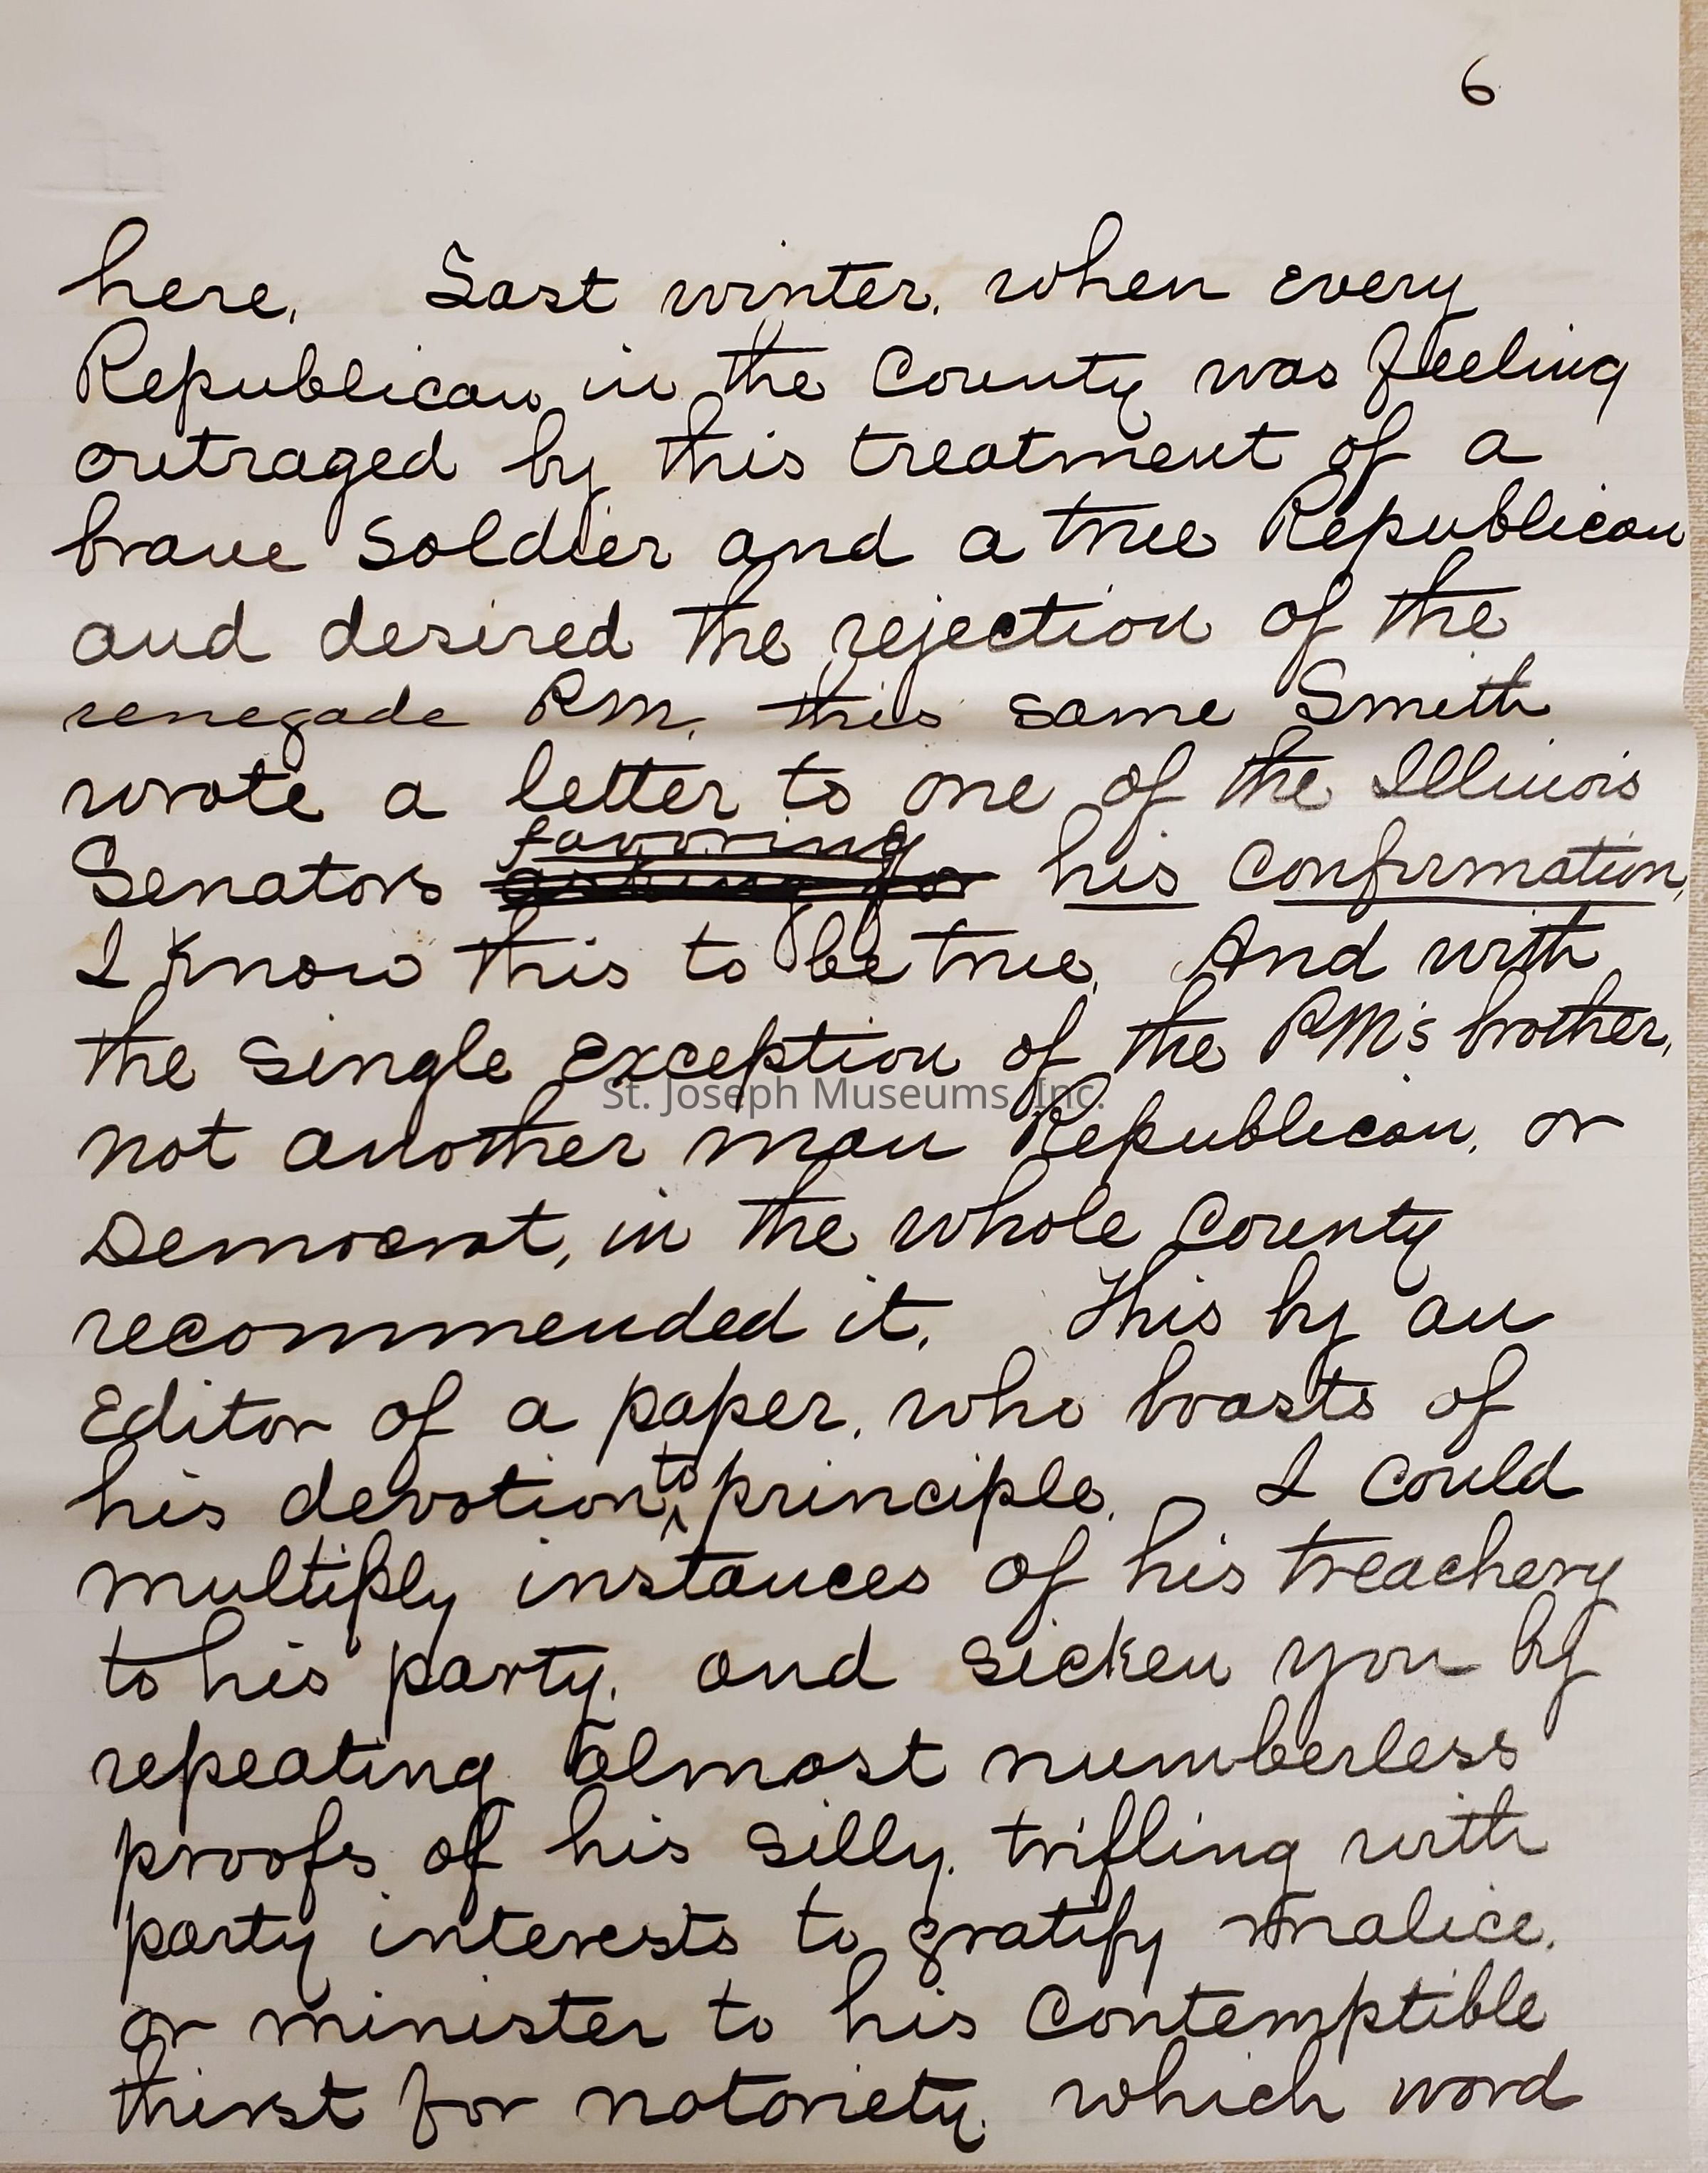 6
here. Last winter, when every
Republican in the County was feeling
outraged by this treatment of a
brave Soldier and a true Republican
and desired the rejection of the
renegade P.M. this same Smith
wrote a letter to one of the Illinois
favoring
Senators asking for his Confirmation.
I know this to be true. And with
the single exception of the P.M.'s brother,
St. Joseph Museums, Inc.
not another man Republican, or
Democrat, in the whole County
recommended it. This by an
Editor of a paper, who boasts of
his devotion to principle. I could
multiply instances of his treachery
to his party, and sicken you by
repeating almost numberless
proofs of his silly, trifling with
party interests to gratify malice,
or minister to his Contemptible
thirst for notoriety, which word